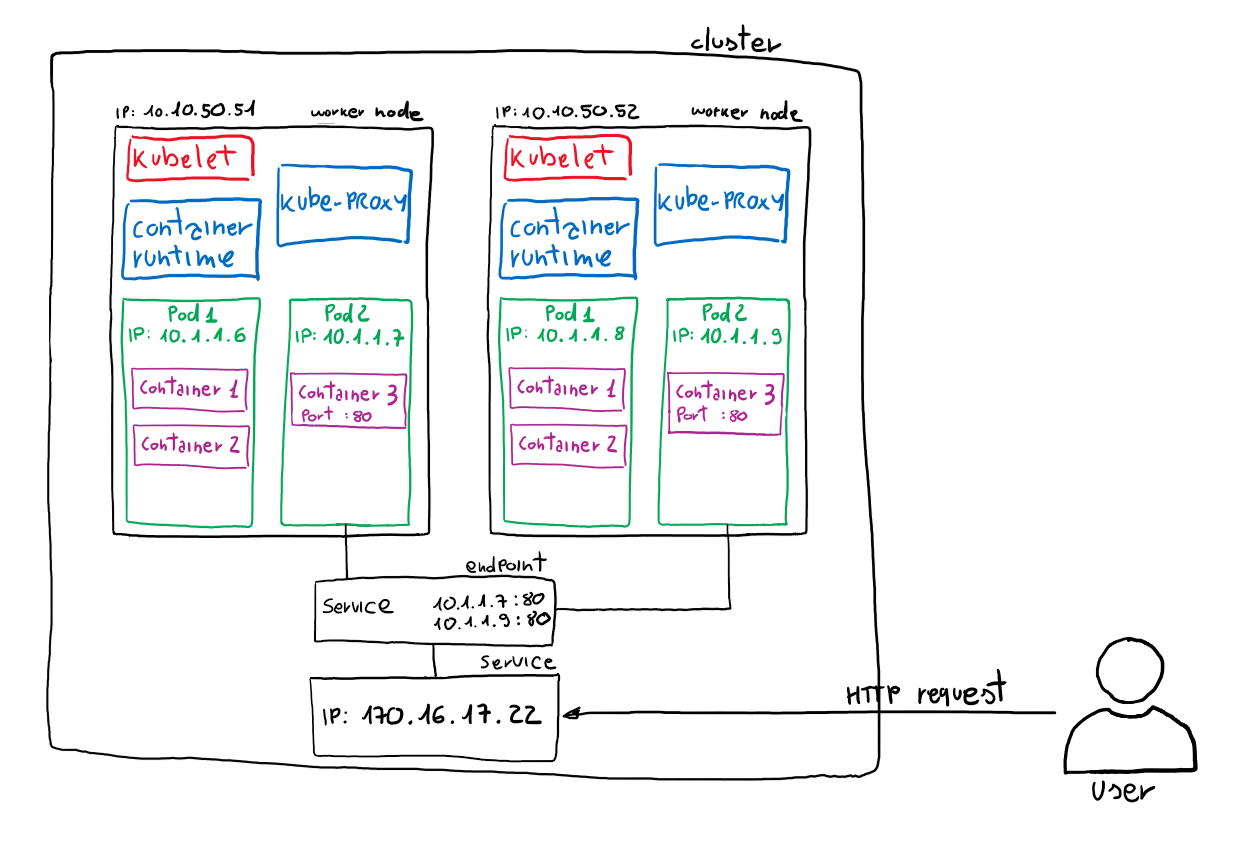 cluster
IP: 10.10.50.51 worker node
Kubelet
Kube-PRoxy
container
runtime
Pod 1
IP: 10.1.1.6
Container 1
Container 2
Pod 2
IP: 10.1.1.7
Container 3
Port :80
IP: 10.10.50.52 worker node
Kubelet
Kube-PRoxy
container
runtime
Pod 1
IP: 10.1.1.8
Container 1
Container 2
Pod 2
IP: 10.1.1.9
Container 3
Port :80
endpoint
Service 10.1.1.7:80
10.1.1.9:80
Service
IP: 170.16.17.22
HTTP request
User